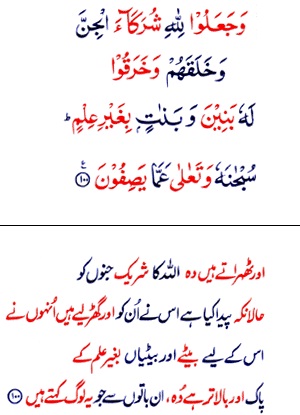 وَجَعَلُوْا لِلّٰهِ شُرَكَآءَ الْجِنَّ
وَخَلَقَهُمْ وَخَرَقُوْا
لَهٗ بَنِيْنَ وَ بَنٰتٍۭ بِغَيْرِ عِلْمٍ ؕ
سُبْحٰنَهٗ وَتَعٰلٰى عَمَّا يَصِفُوْنَ ﴿۱۰۰﴾ ع
اور ٹھہراتے ہیں وہ اللہ کا شریک جنوں کو
حالانکہ پیدا کیا ہے اس نے اُن کو اور گھڑ لیے ہیں اُنہوں نے
اس کے لیے بیٹے اور بیٹیاں بغیر علم کے
پاک اور بالاتر ہے وُہ، ان باتوں سے جو یہ لوگ کہتے ہیں ﴿۱۰۰﴾